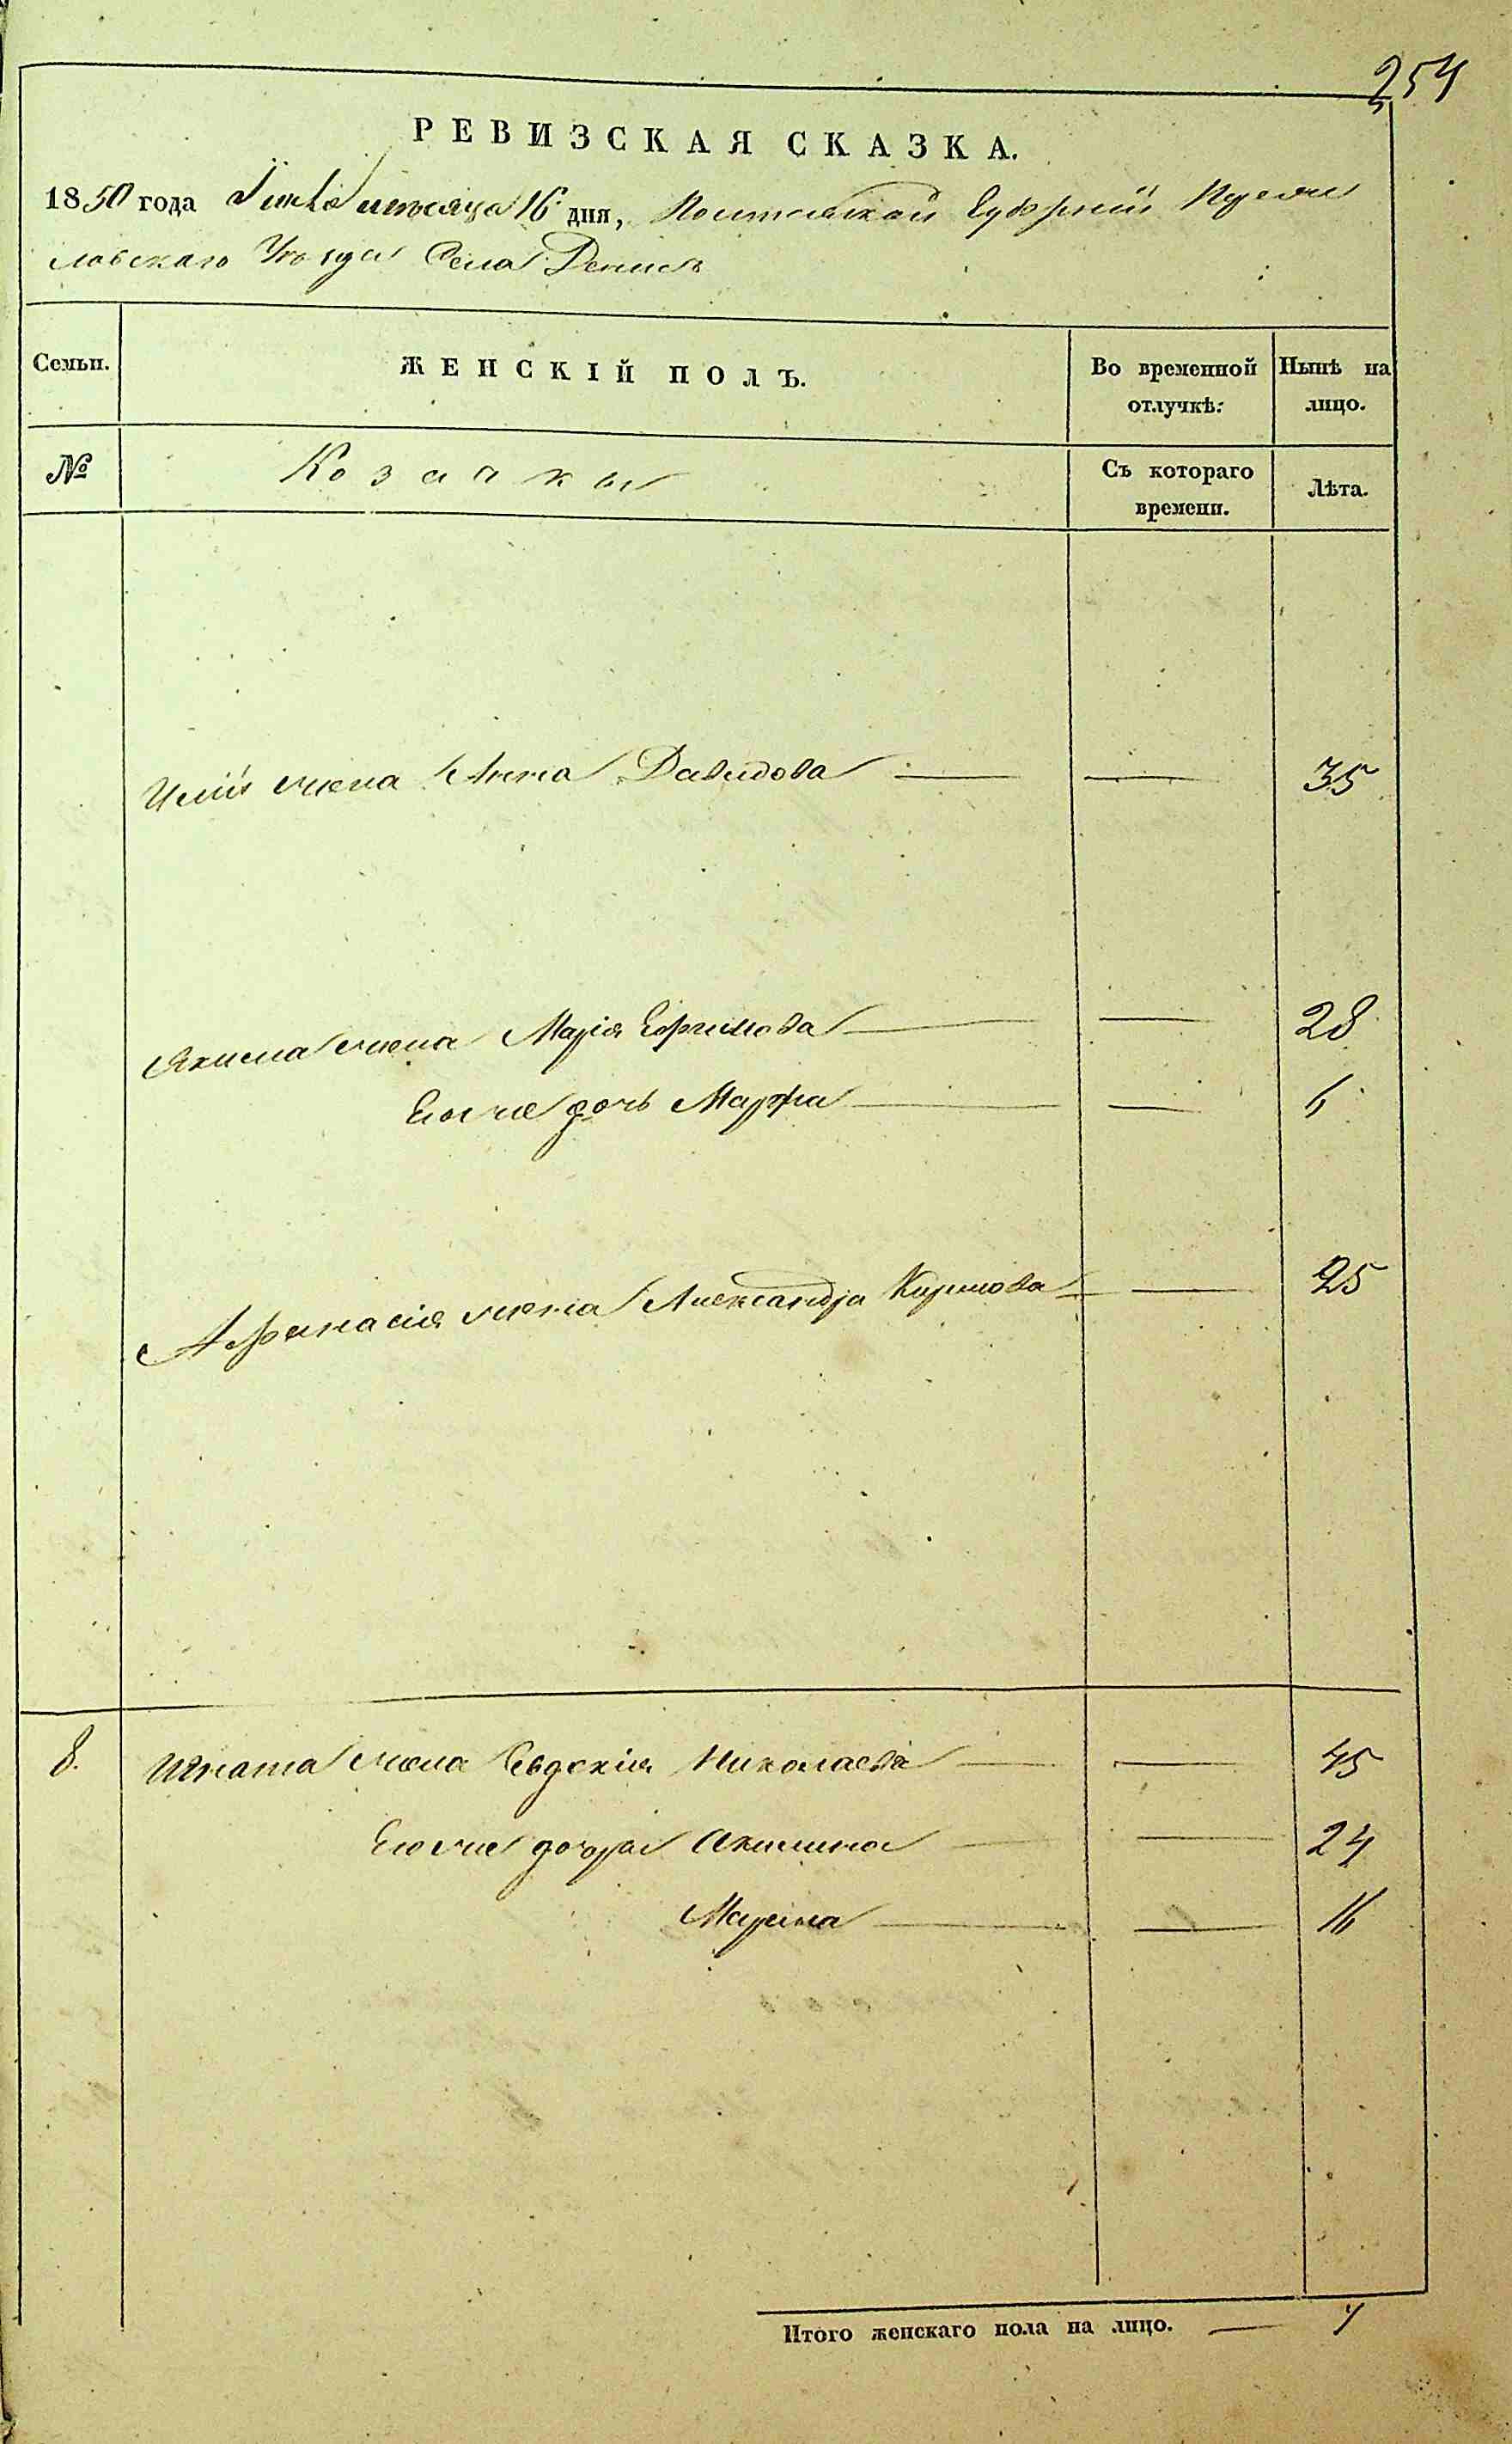 254
РЕВИЗСКАЯ СКАЗКА.
1850 года Іюля месяца 16 дня, Полтавской Губерніи Переяс
лавскаго Уезда Села Денисъ
Семьи.
ЖЕНСКІЙ ПОЛЪ.
Во временной отлучкѣ:
Нынѣ на лицо.
№
Козачки
Съ котораго времени.
Лѣта.
Иліи жена Анна Давидова — — 35
Якима жена Марія Ефимова — — 28
Его же дочь Марфа — — 6
Афанасія жена Александра Кирилова — — 25
8. Игната жена Евдокія Николаева — — 45
Его же дочери Акилина — — 24
Марина — — 16
Итого женскаго пола на лицо. — 7